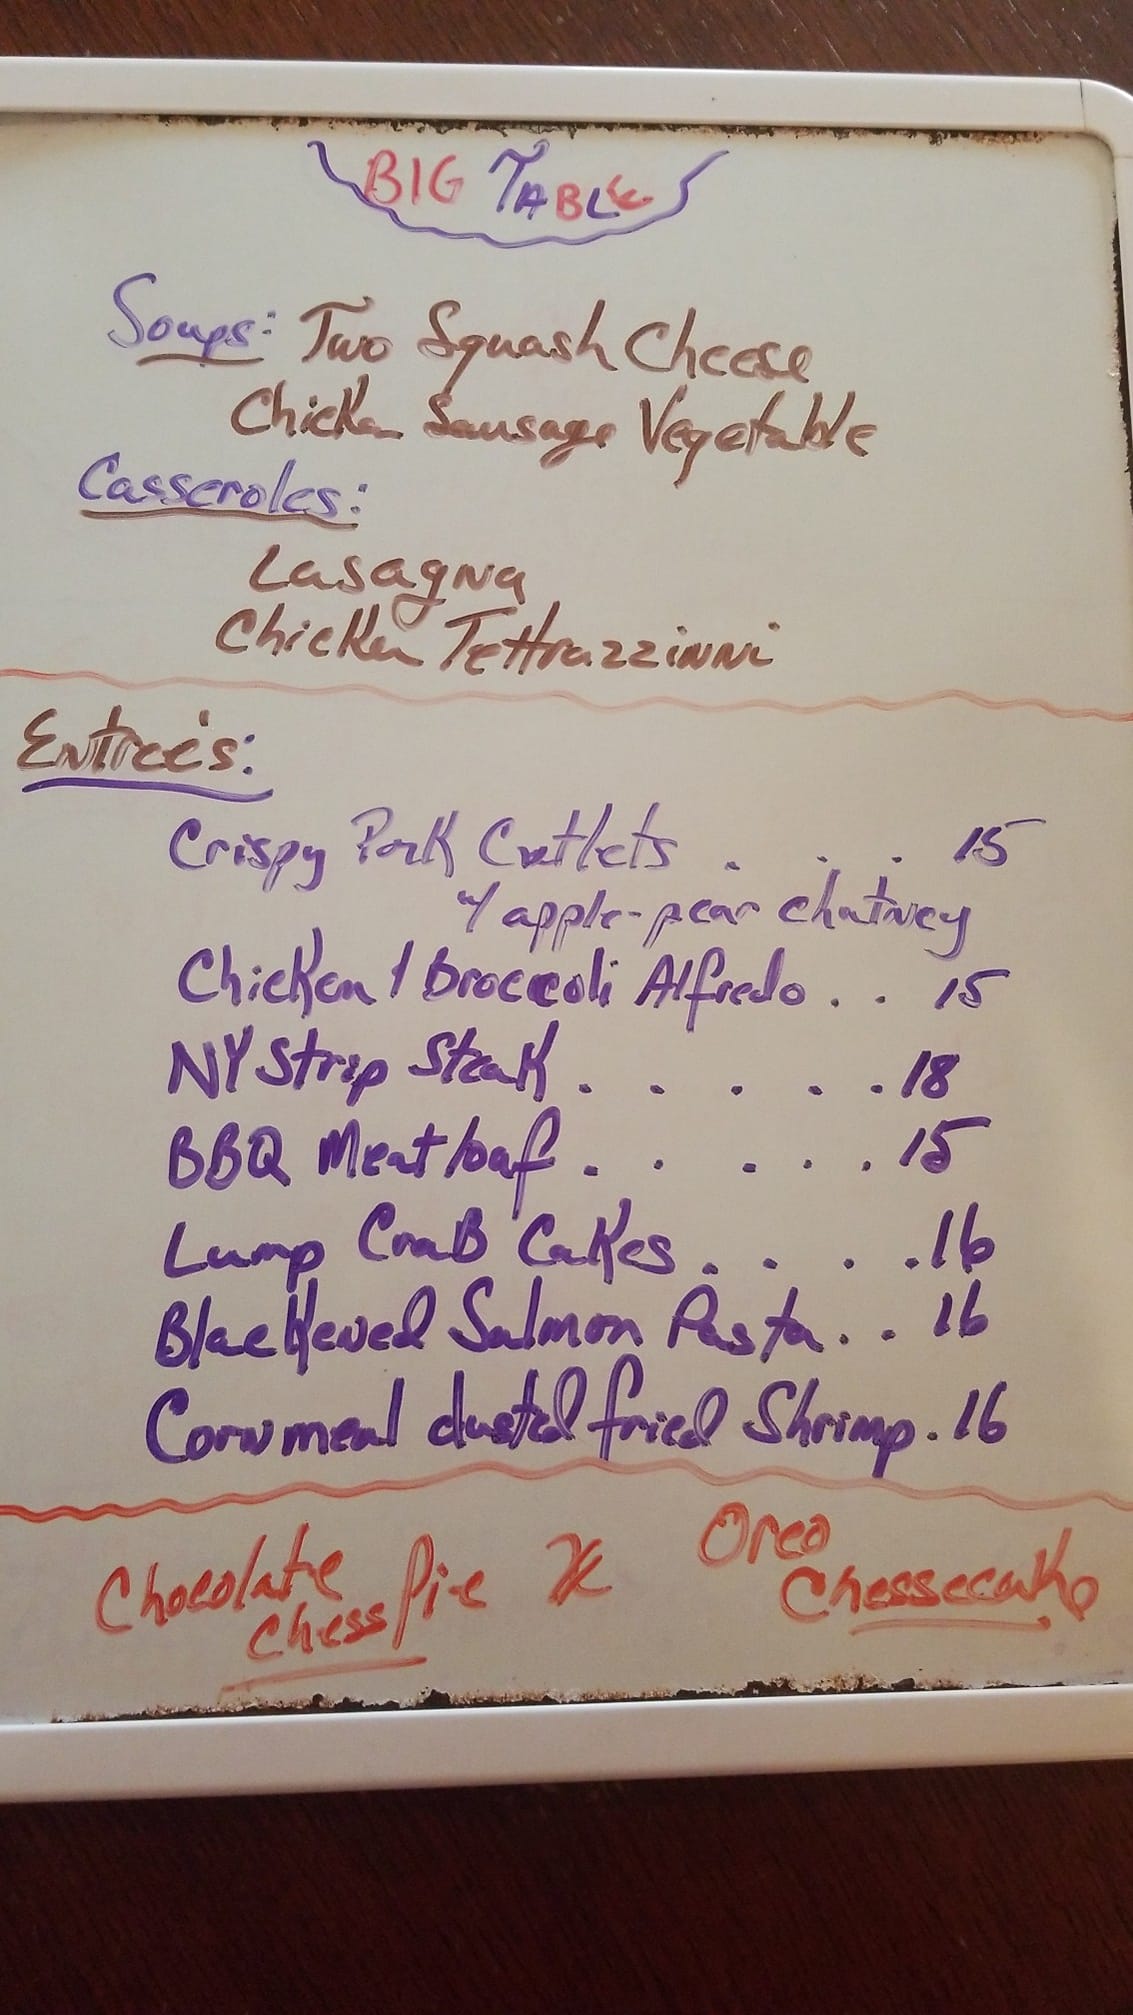 BIG TABLE
Soups: Two Squash Cheese
Chicken Sausage Vegetable
Casseroles:
Lasagna
Chicken Tettrazzinni
Entree's:
Crispy Pork Cutlets . . . 15
w/ apple-pear chutney
Chicken / broccoli Alfredo . . 15
NY Strip Steak . . . . . 18
BBQ Meatloaf . . . . . 15
Lump CraB Cakes . . . . 16
Blackened Salmon Pasta . . 16
Cornmeal dusted fried Shrimp . 16
Chocolate Chess Pie
Oreo Chessecake